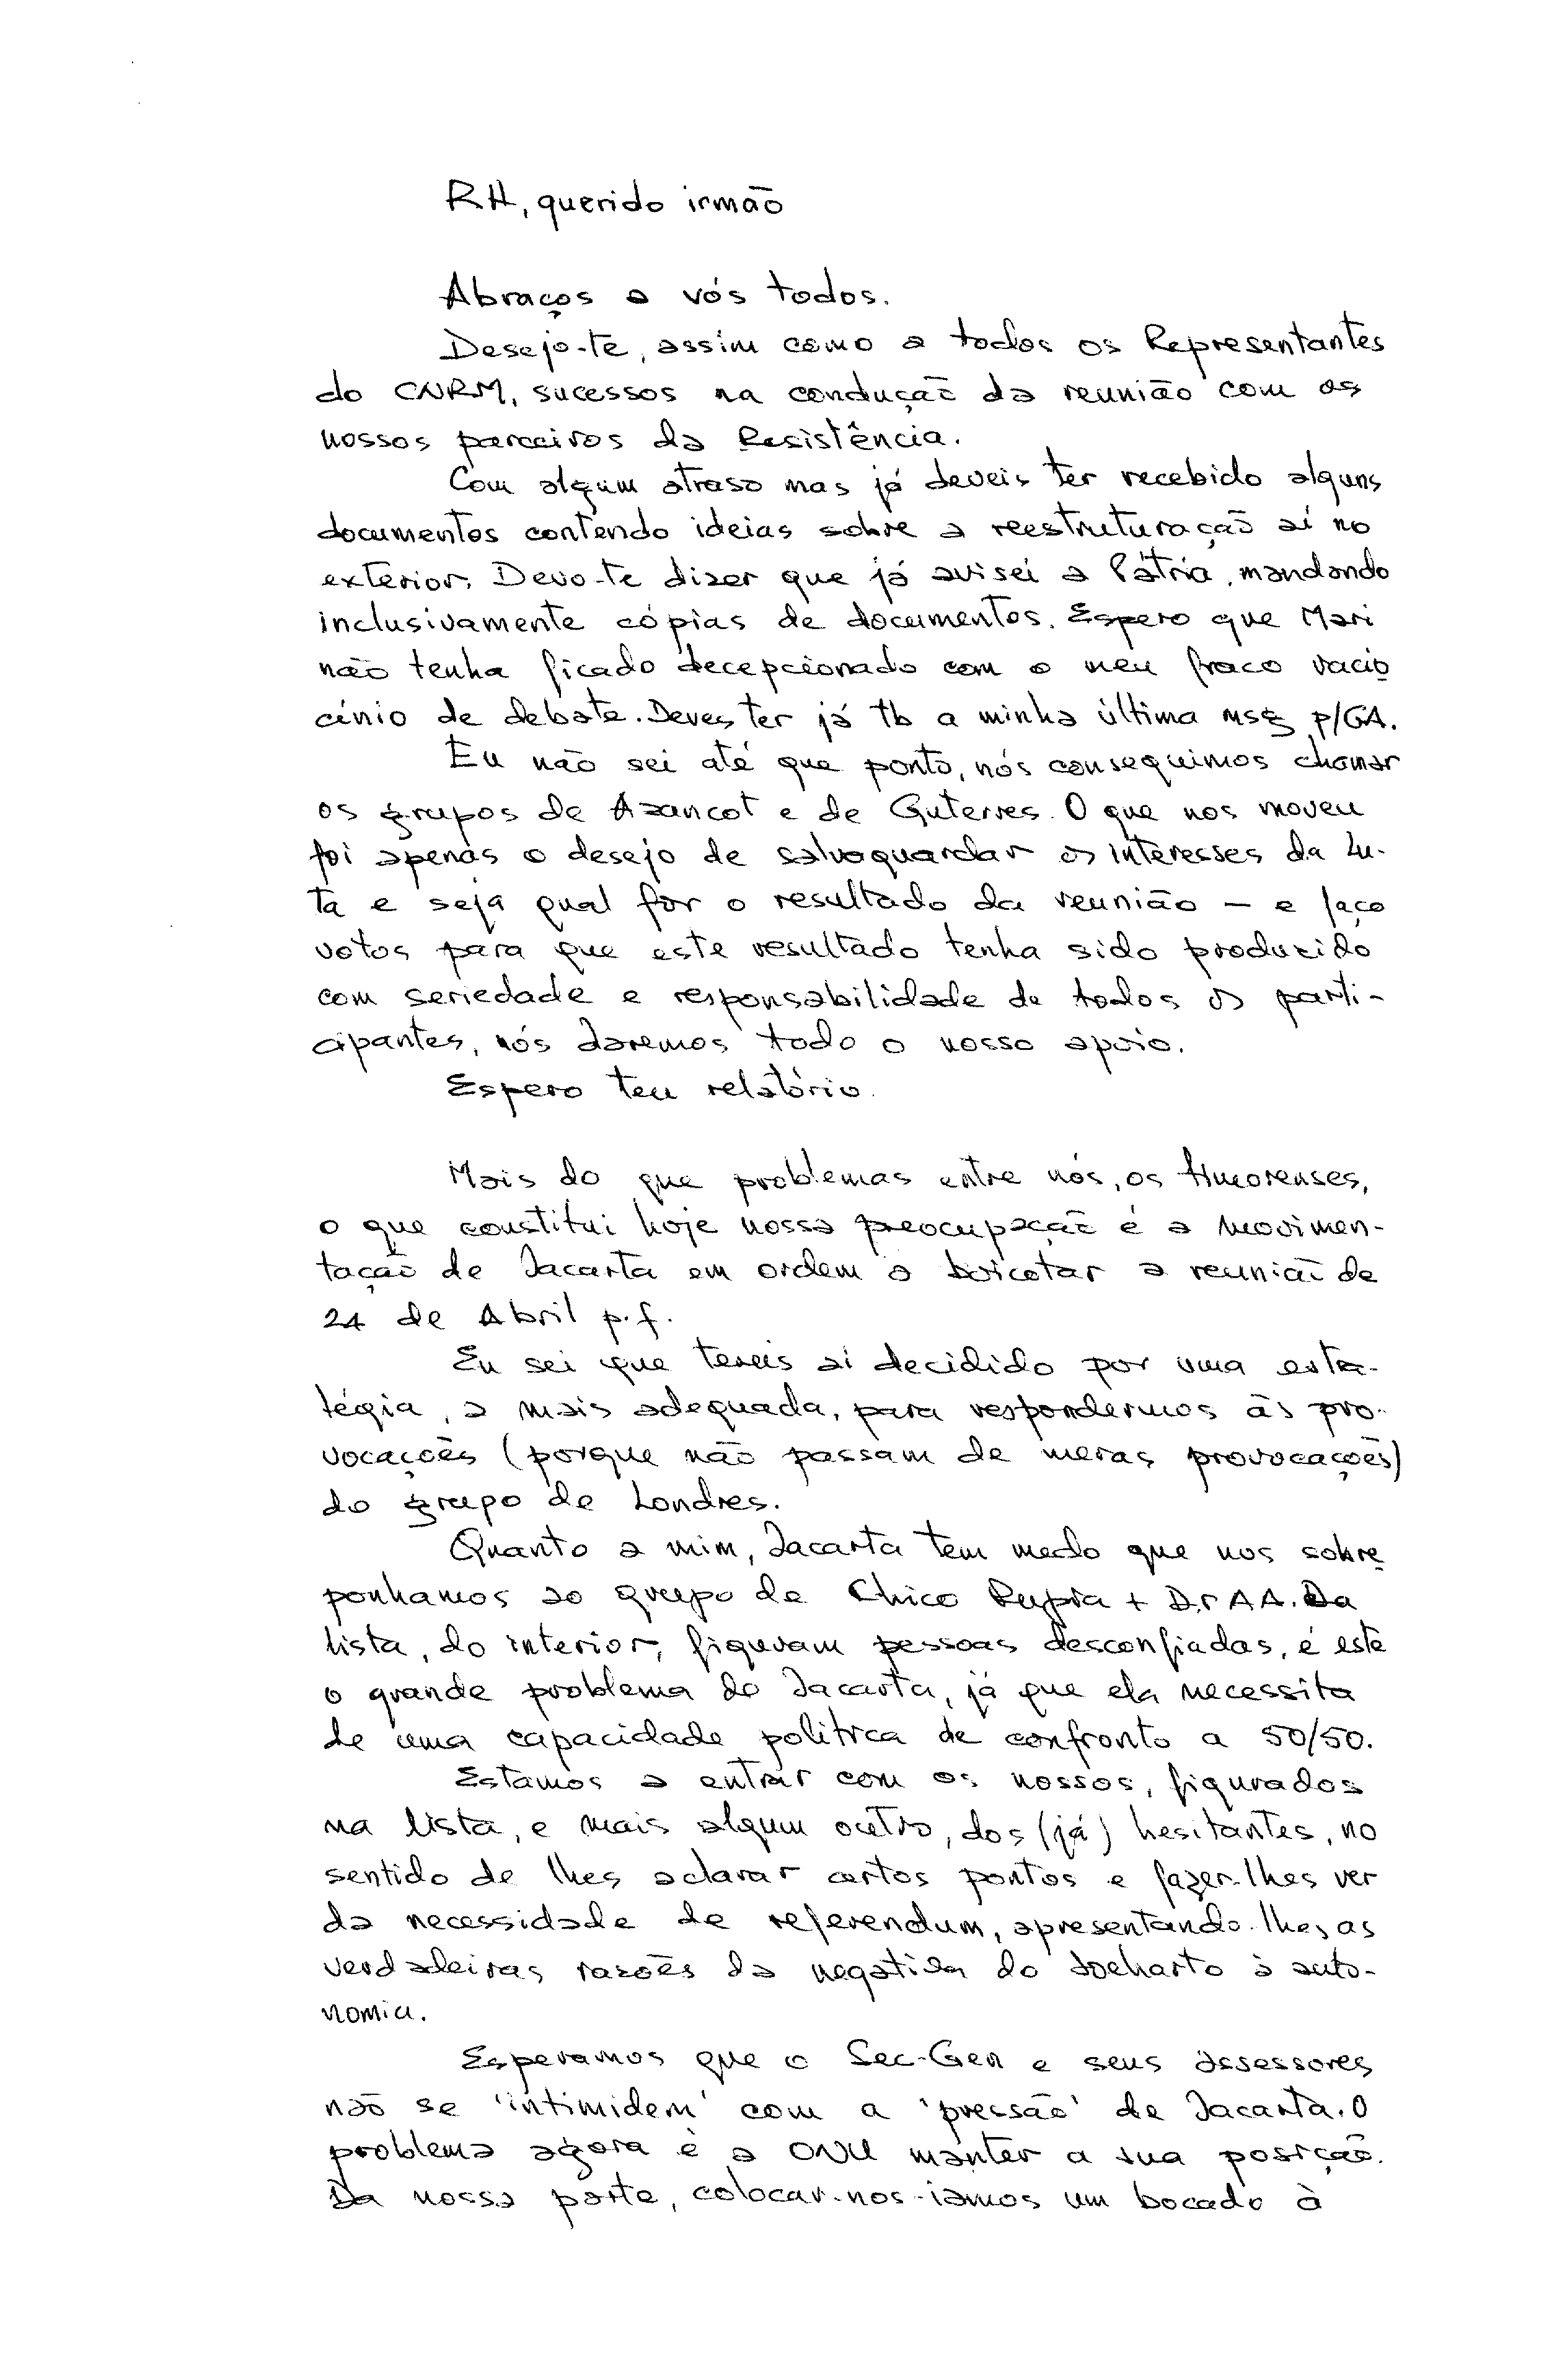 RH, querido irmão
Abraços a vós todos.
Desejo-te, assim como a todos os Representantes
do CNRM, sucessos na condução da reunião com os
nossos parceiros da Resistência.
Com algum atraso mas já deveis ter recebido alguns
documentos contendo ideias sobre a reestruturação aí no
exterior. Devo-te dizer que já avisei a Pátria, mandando
inclusivamente cópias de documentos. Espero que Mari
não tenha ficado decepcionado com o meu fraco racio
cínio de debate. Deves ter já tb a minha última msg p/GA.
Eu não sei até que ponto, nós conseguimos chamar
os grupos de Azancot e de Guterres. O que nos moveu
foi apenas o desejo de salvaguardar os interesses da Lu-
ta e seja qual for o resultado da reunião — e faço
votos para que este resultado tenha sido produzido
com seriedade e responsabilidade de todos os parti-
cipantes, nós daremos todo o nosso apoio.
Espero teu relatório.
Mais do que problemas entre nós, os timorenses,
o que constitui hoje nossa preocupação é a movimen-
tação de Jacarta em ordem a boicotar a reunião de
24 de Abril p.f.
Eu sei que tereis aí decidido por uma estra-
tégia, a mais adequada, para respondermos às pro-
vocações (porque não passam de meras provocações)
do grupo de Londres.
Quanto a mim, Jacarta tem medo que nos sobre
ponhamos ao grupo de Chico + Dr AA. Da
lista, do interior, figuram pessoas desconfiadas, é este
o grande problema de Jacarta, já que ela necessita
de uma capacidade política de confronto a 50/50.
Estamos a entrar com os nossos, figurados
na lista, e mais algum outro, dos (já) hesitantes, no
sentido de lhes aclarar certos pontos e fazer-lhes ver
da necessidade de referendum, apresentando-lhes as
verdadeiras razões da negativa do Soeharto à auto-
nomia.
Esperamos que o Sec-Gen e seus assessores
não se 'intimidem' com a 'pressão' de Jacarta. O
problema agora é a ONU manter a sua posição.
Da nossa parte, colocar-nos-íamos um bocado à